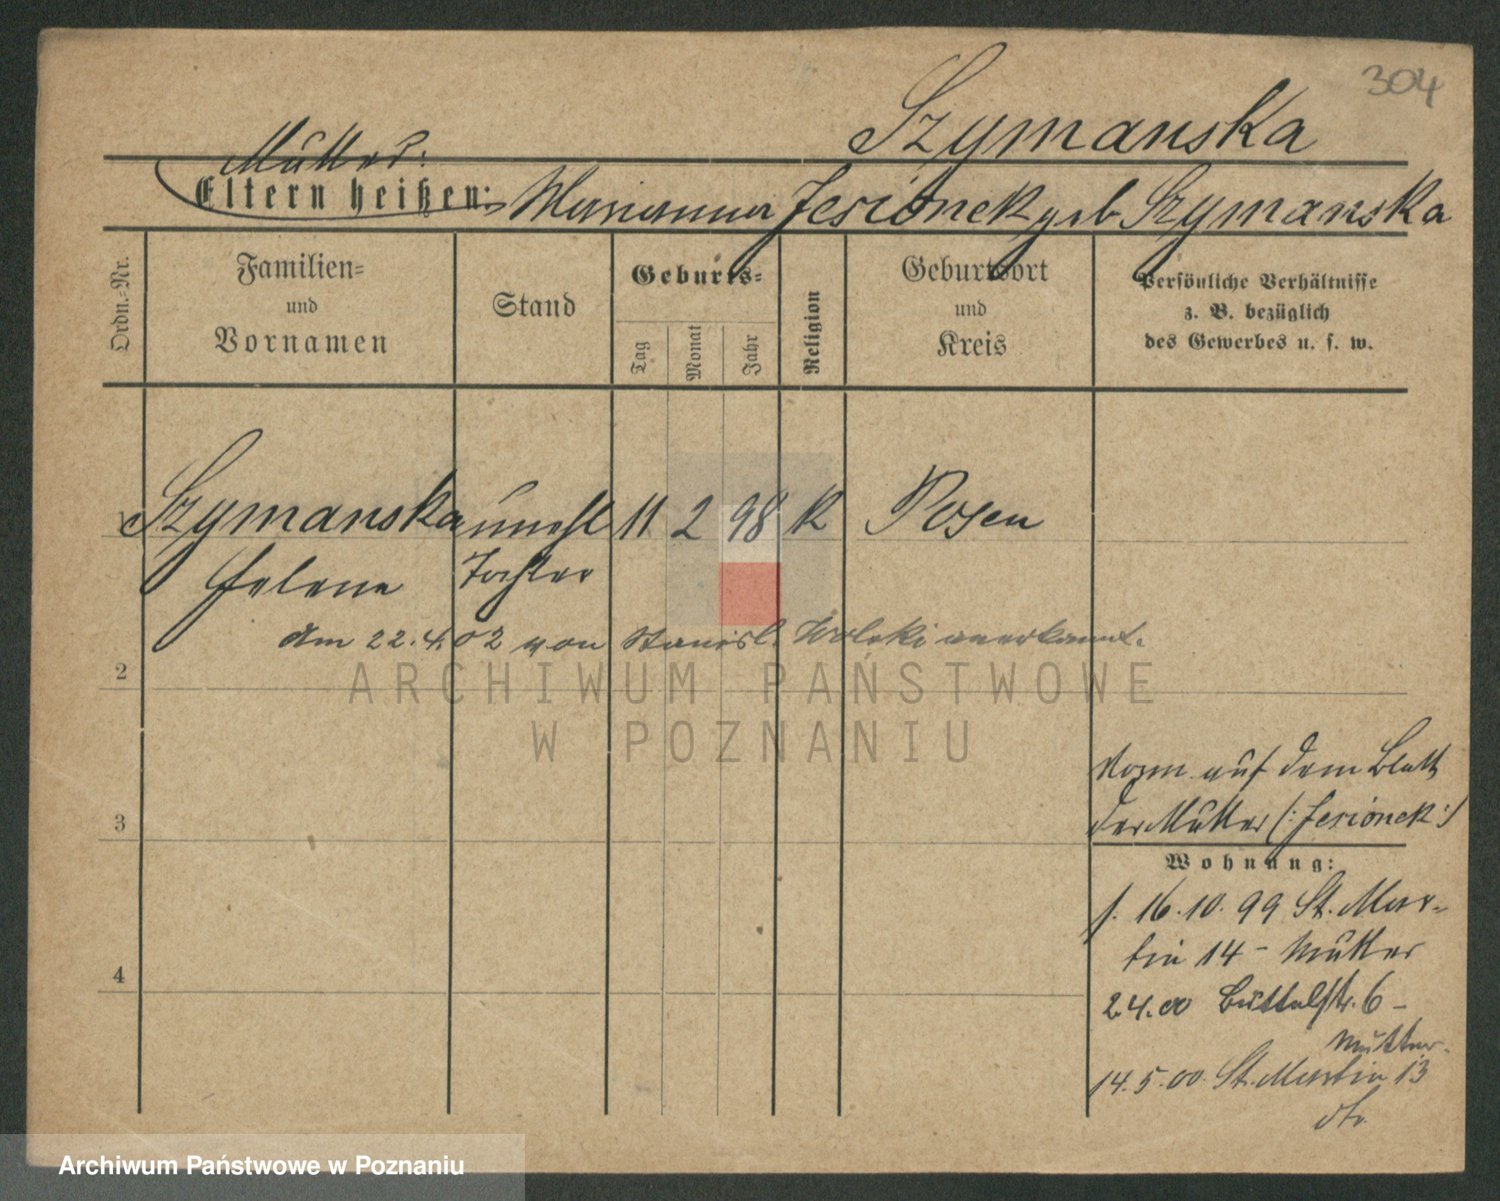 304
Szymanska
Mutter:
Eltern heißen: Marianna Jesionek geb Szymanska
Ordn.=Nr.
Familien=
und
Vornamen
Stand
Geburts=
Tag
Monat
Jahr
Religion
Geburtsort
und
Kreis
Persönliche Verhältnisse
z. B. bezüglich
des Gewerbes u. s. w.
1 Szymanska unehl 11 2 98 K Posen
Helene Tochter
Am 22.4.02 von Stanisl. Wolski anerkannt.
2
ARCHIWUM PAŃSTWOWE
W POZNANIU
3
4
Vorm auf dem Blatt
der Mutter (: Jesionek :)
Wohnung:
f. 16.10.99 St. Mar-
tin 14 - Mutter
2.4.00 Büttelstr. 6 -
Mutter.
14.5.00 St. Martin 13
dto
Archiwum Państwowe w Poznaniu